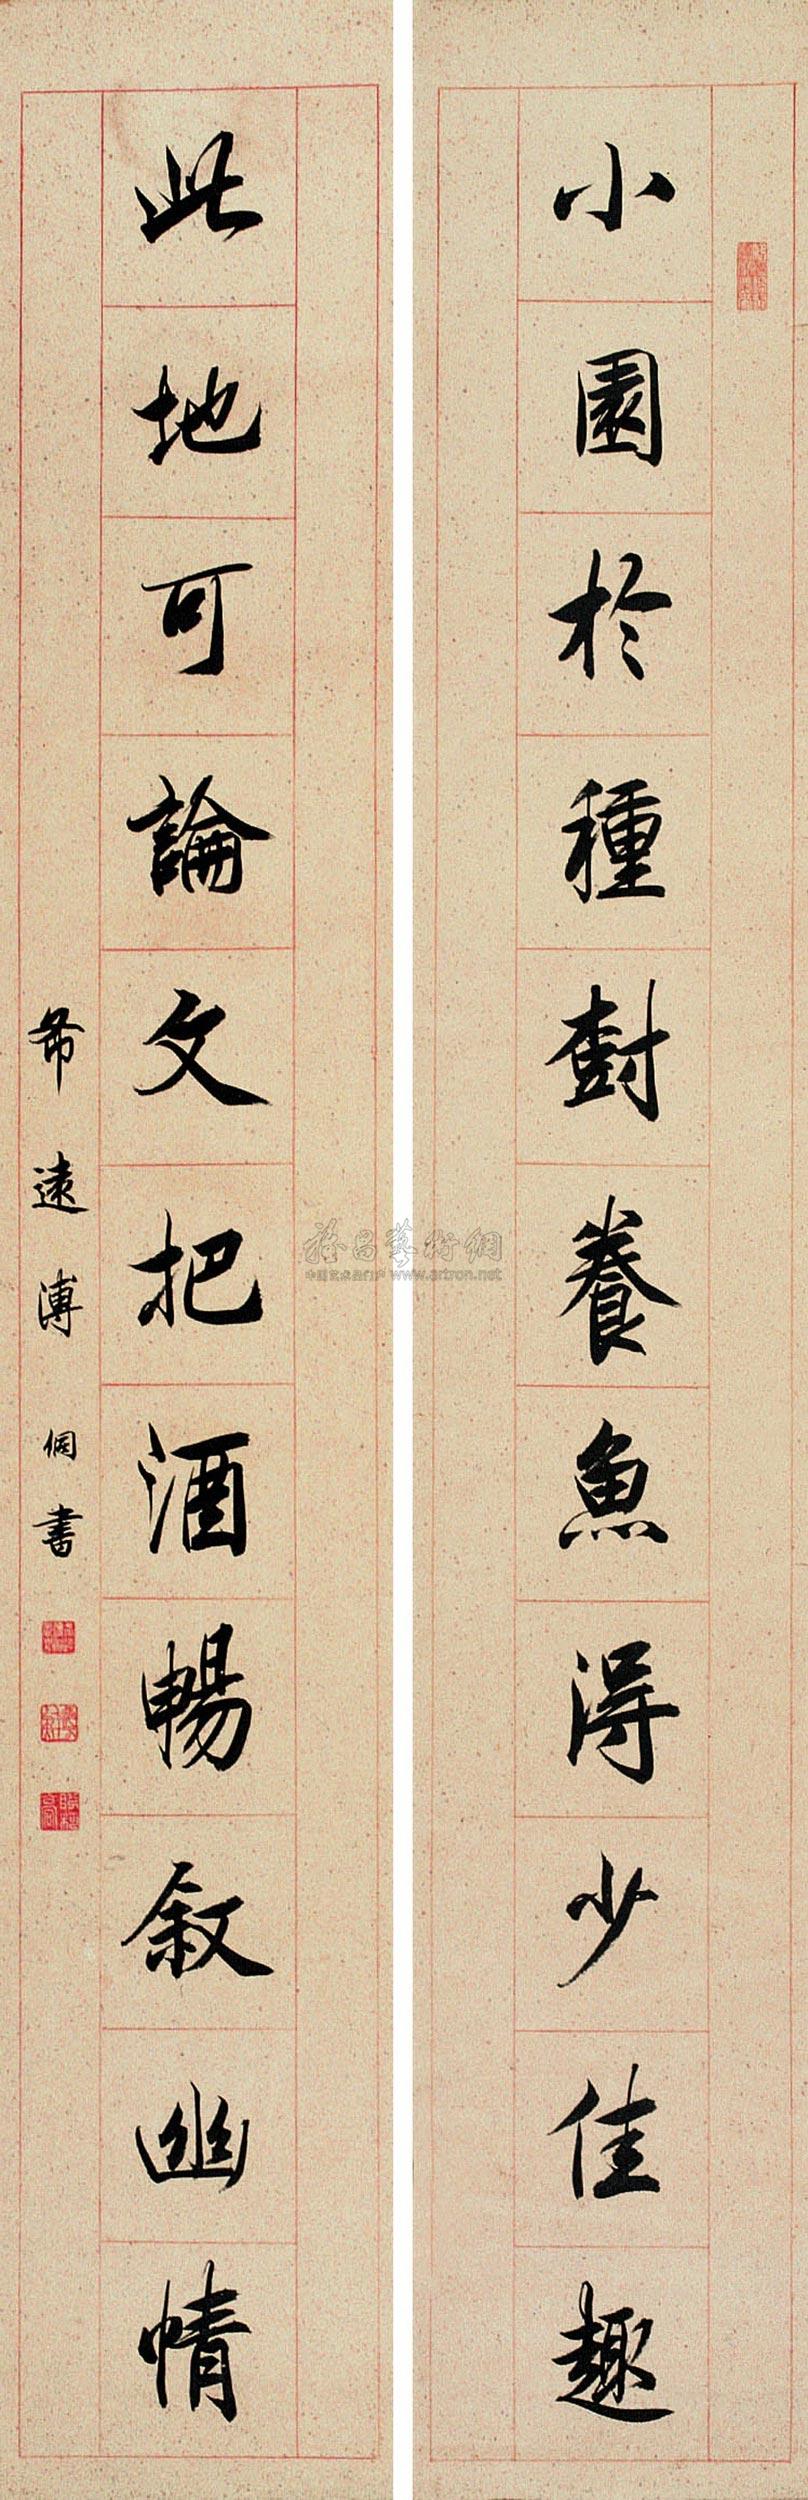 小園於種樹養魚得少佳趣
此地可論文把酒暢叙幽情
希遠溥侗書
雅昌藝術網
中国艺术品门户 www.artron.net